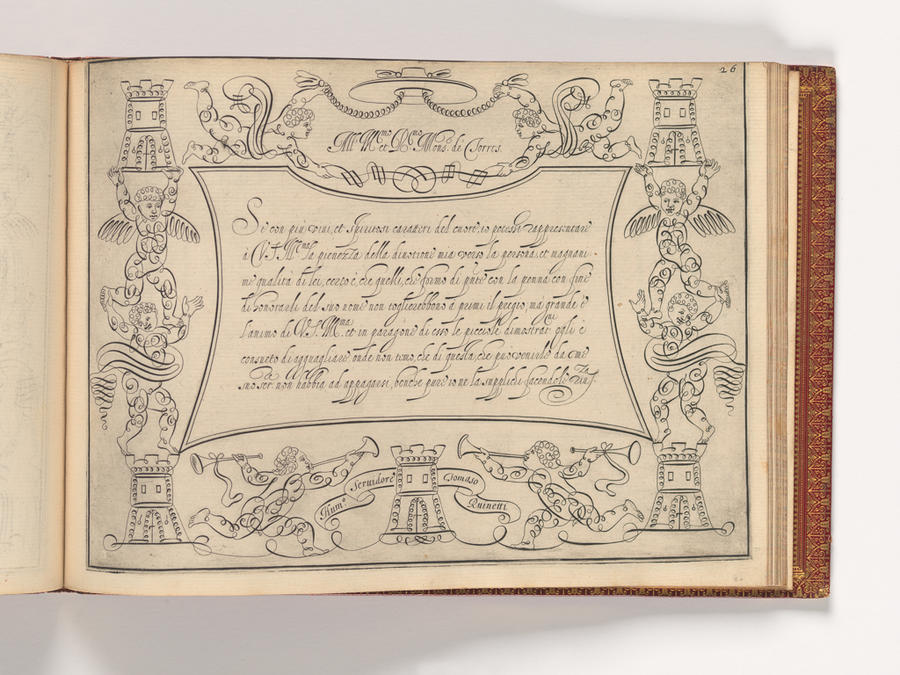 26
All Ill.mo et R.mo Mons.r de Torres.
Se con più vivi, et spiritosi caratteri del cuore, io potessi rappresentare
à V.S. Ill.ma la pienezza della divotione mia verso la persona, et magnani-
me qualità di lei, certo è, che quelli, che formo di pñte con la penna con fine
di honorarli del suo nome non toglierebbono à primi il pregio, mà grande è
l'animo di V.S. Ill.ma et in paragone di esso le picciole dimostrat.ni egli è
consueto di agguagliare onde non temo, che di questa, che può venirle da me
suo ser.re non habbia ad appagarsi, benche pure io ne la supplichi facendole
Hum.o Servidore Tomaso
Ruinetti.